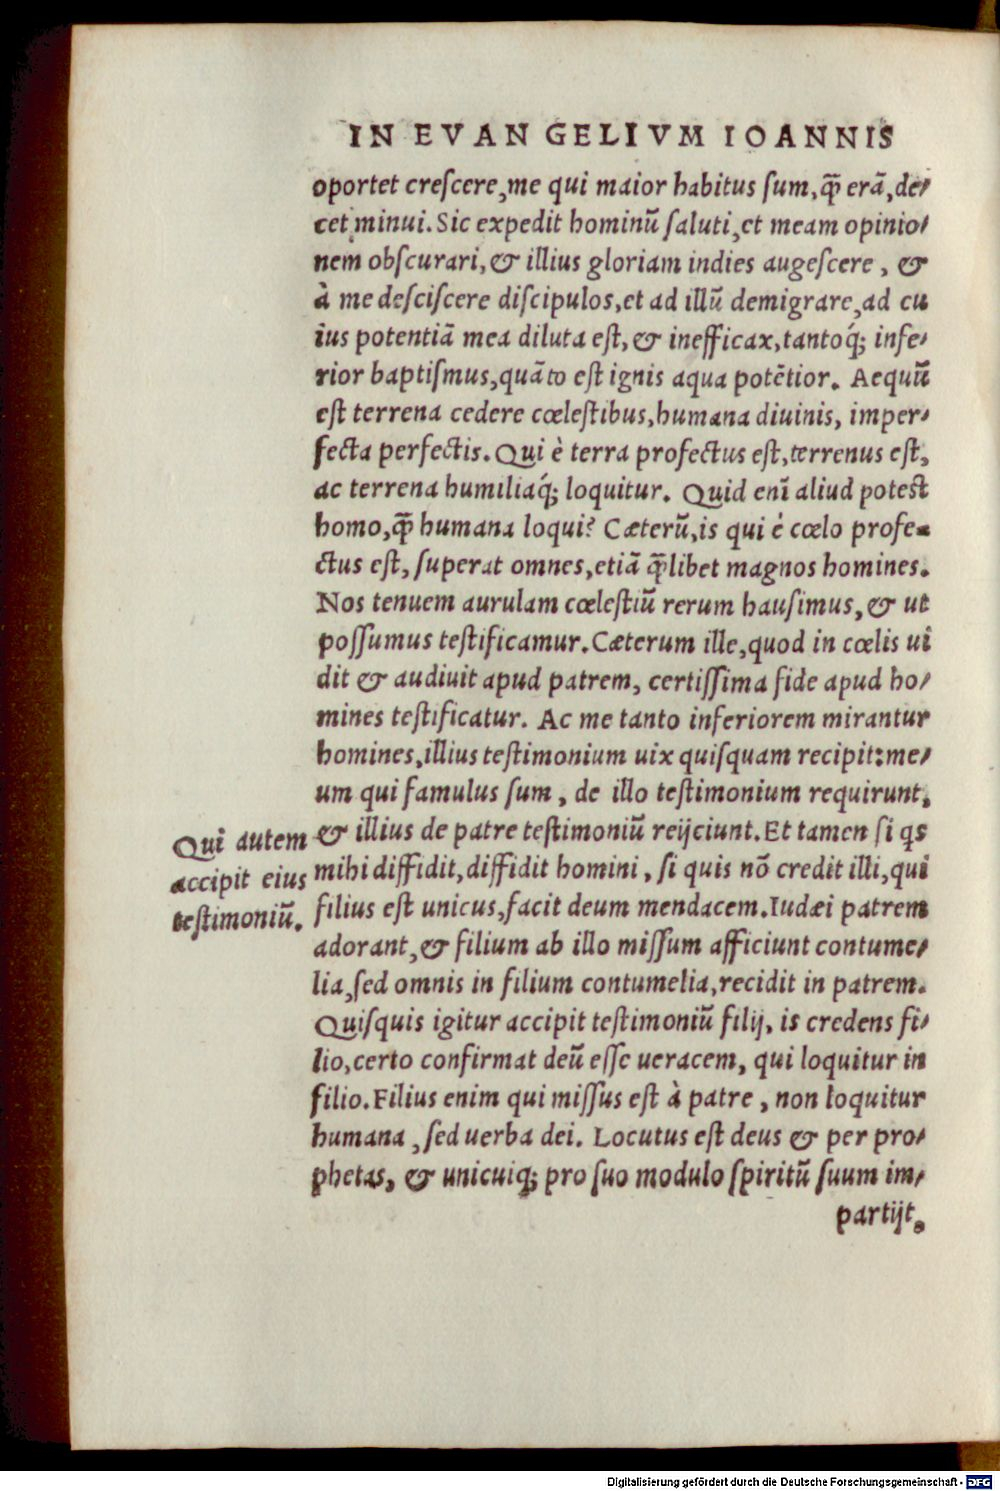 IN EVANGELIVM IOANNIS
oportet creſcere, me qui maior habitus ſum, q̃ erã, de/
cet minui. Sic expedit hominũ ſaluti, et meam opinio/
nem obſcurari, & illius gloriam indies augeſcere, &
à me deſciſcere diſcipulos, et ad illũ demigrare, ad cu
ius potentiã mea diluta eſt, & inefficax, tantoq́; infe/
rior baptiſmus, quãto eſt ignis aqua potẽtior. Aequũ
eſt terrena cedere cœleſtibus, humana diuinis, imper/
fecta perfectis. Qui è terra profectus eſt, terrenus eſt,
ac terrena humiliaq́; loquitur. Quid enĩ aliud poteſt
homo, q̃ humana loqui? Cæterũ, is qui è cœlo profe-
ctus eſt, ſuperat omnes, etiã q̃libet magnos homines.
Nos tenuem aurulam cœleſtiũ rerum hauſimus, & ut
poſſumus teſtificamur. Cæterum ille, quod in cœlis ui
dit & audiuit apud patrem, certiſſima fide apud ho/
mines teſtificatur. Ac me tanto inferiorem mirantur
homines, illius teſtimonium uix quiſquam recipit: me/
um qui famulus ſum, de illo teſtimonium requirunt,
& illius de patre teſtimoniũ reijciunt. Et tamen ſi qs
mihi diffidit, diffidit homini, ſi quis nõ credit illi, qui
filius eſt unicus, facit deum mendacem. Iudæi patrem
adorant, & filium ab illo miſſum afficiunt contume/
lia, ſed omnis in filium contumelia, recidit in patrem.
Quiſquis igitur accipit teſtimoniũ filij, is credens fi/
lio, certo confirmat deũ eſſe ueracem, qui loquitur in
filio. Filius enim qui miſſus eſt à patre, non loquitur
humana, ſed uerba dei. Locutus eſt deus & per pro/
phetas, & unicuiq; pro ſuo modulo ſpiritũ ſuum im/
partijt.
Qui autem
accipit eius
teſtimoniũ.
Digitalisierung gefördert durch die Deutsche Forschungsgemeinschaft - DFG